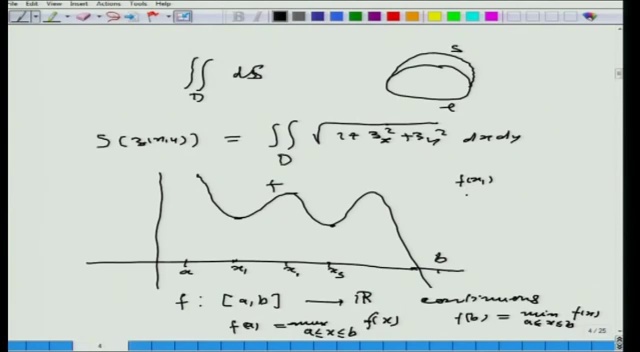 File Edit View Insert Actions Tools Help
∬_D dS
S
S(z(x,y)) = ∬_D √(1+z_x^2+z_y^2) dxdy
f
f(x_1)
a x_1 x_2 x_3 b
f : [a,b] → ℝ continuous
f(a) = max_{a≤x≤b} f(x) f(b) = min_{a≤x≤b} f(x)
4 4 / 25